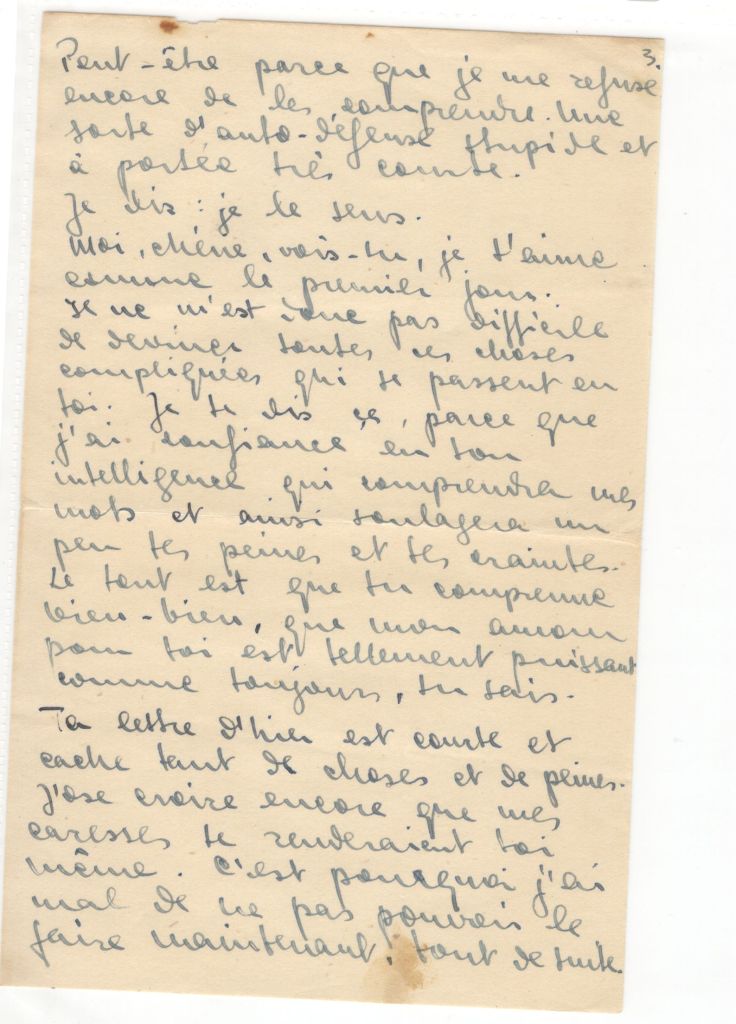 3.
Peut-être parce que je me refuse
encore de les comprendre. Une
sorte d'auto-défense stupide et
à portée très courte.
Je dis : je le sens.
Moi, chérie, vois-tu, je t'aime
comme le premier jour.
Il ne m'est donc pas difficile
de deviner toutes ces choses
compliquées qui se passent en
toi. Je te dis ça, parce que
j'ai confiance en ton
intelligence qui comprendra mes
mots et ainsi soulagera un
peu tes peines et tes craintes.
Le tout est que tu comprenne
bien-bien, que mon amour
pour toi est tellement puissant
comme toujours, tu sais.
Ta lettre d'hier est courte et
cache tant de choses et de peines.
J'ose croire encore que mes
caresses te renderaient toi
même. C'est pourquoi j'ai
mal de ne pas pouvoir le
faire maintenant, tout de suite.